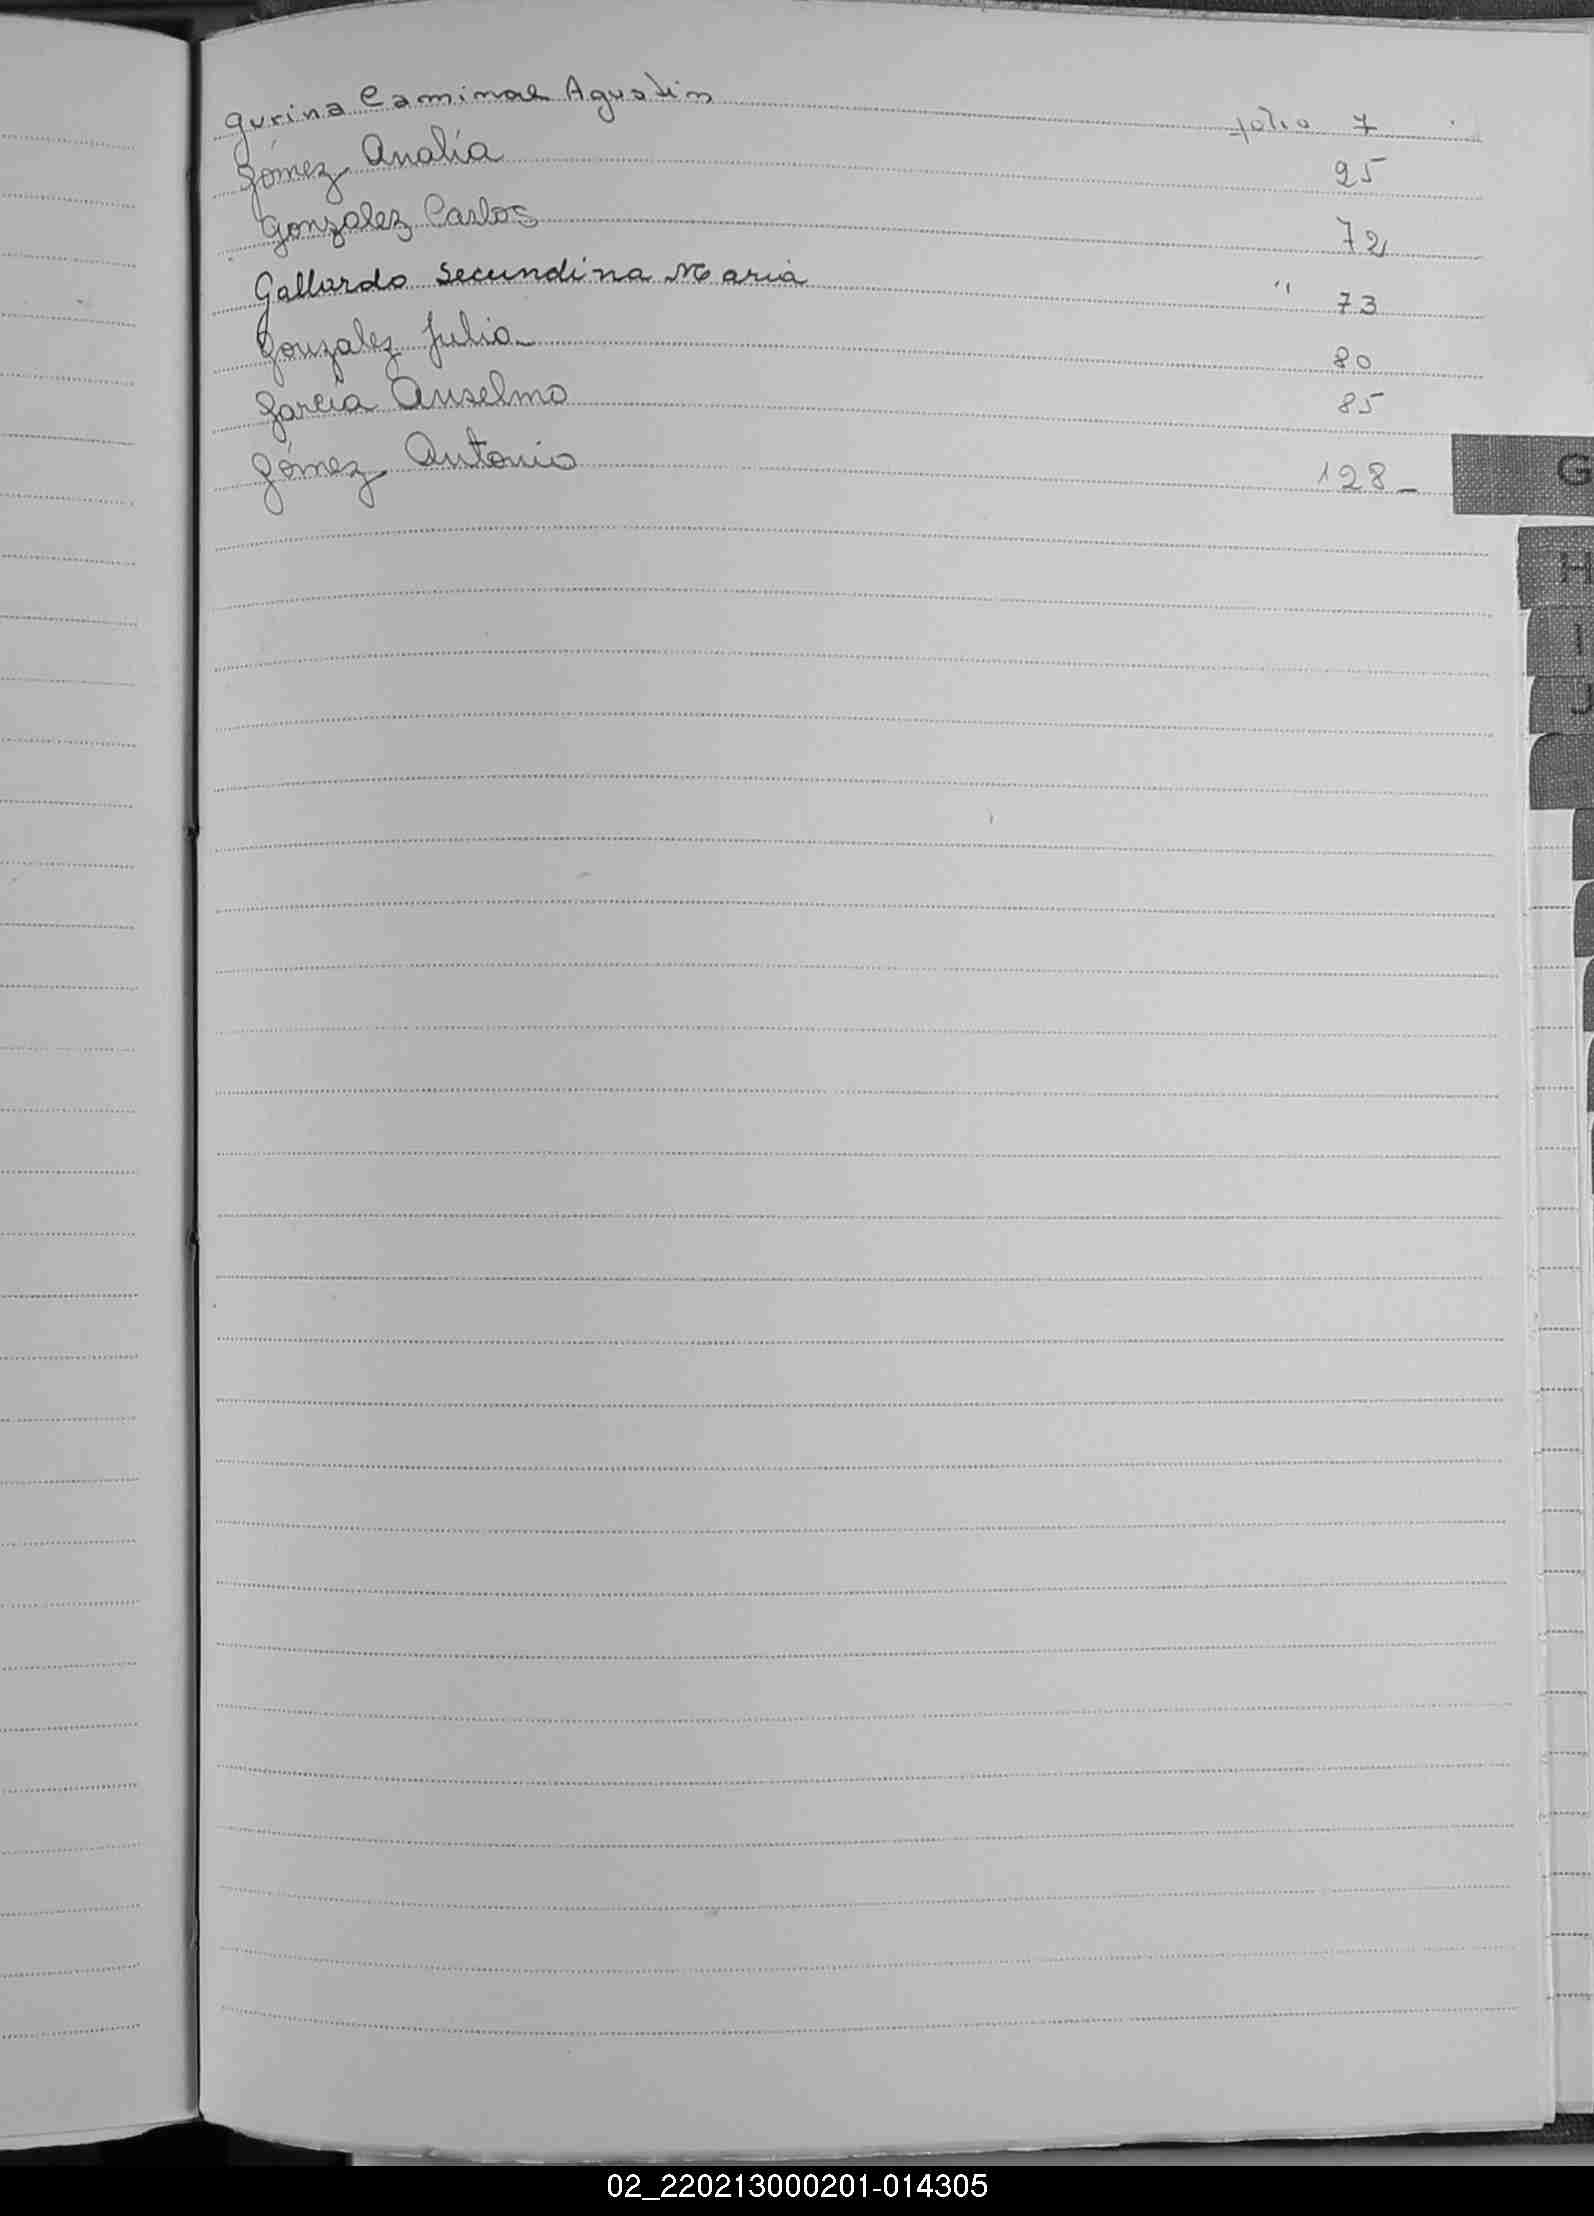 Gurina Caminal Agustin folio 7
Gómez Analía 25
Gonzalez Carlos 72
Gallardo Secundina Maria " 73
Gonzalez Julio 80
García Anselmo 85
Gómez Antonio 128
G
H
I
J
02_220213000201-014305